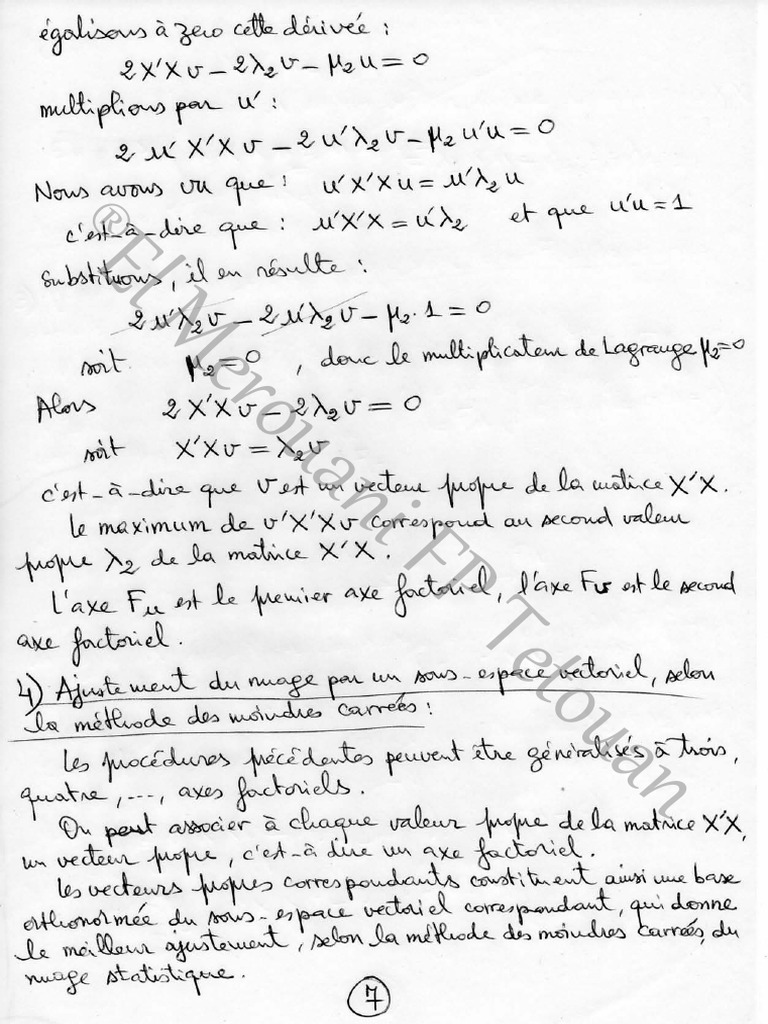 égalisons à zero cette dérivée :
2X'Xv - 2λ₂v - μ₂u = 0
multiplions par u' :
2 u' X'Xv - 2 u'λ₂v - μ₂ u'u = 0
Nous avons vu que : u'X'Xu = u'λ₂u
c'est-à-dire que : u'X'X = u'λ₂ et que u'u = 1
substituons, il en résulte :
2u'λ₂v - 2u'λ₂v - μ₂·1 = 0
soit μ₂ = 0 , donc le multiplicateur de Lagrange μ₂=0
Alors 2X'Xv - 2λ₂v = 0
soit X'Xv = λ₂v
c'est-à-dire que v est un vecteur propre de la matrice X'X.
Le maximum de v'X'Xv correspond au second valeur
propre λ₂ de la matrice X'X.
L'axe Fu est le premier axe factoriel, l'axe Fv est le second
axe factoriel.
4) Ajustement du nuage par un sous-espace vectoriel, selon
la méthode des moindres carrées :
Les procédures précédentes peuvent être généralisés à trois,
quatre, ..., axes factoriels.
On peut associer à chaque valeur propre de la matrice X'X,
un vecteur propre, c'est-à dire un axe factoriel.
Les vecteurs propres correspondants constituent ainsi une base
orthonormée du sous-espace vectoriel correspondant, qui donne
le meilleur ajustement, selon la méthode des moindres carrées, du
nuage statistique.
7
®El Merouani FP Tetouan